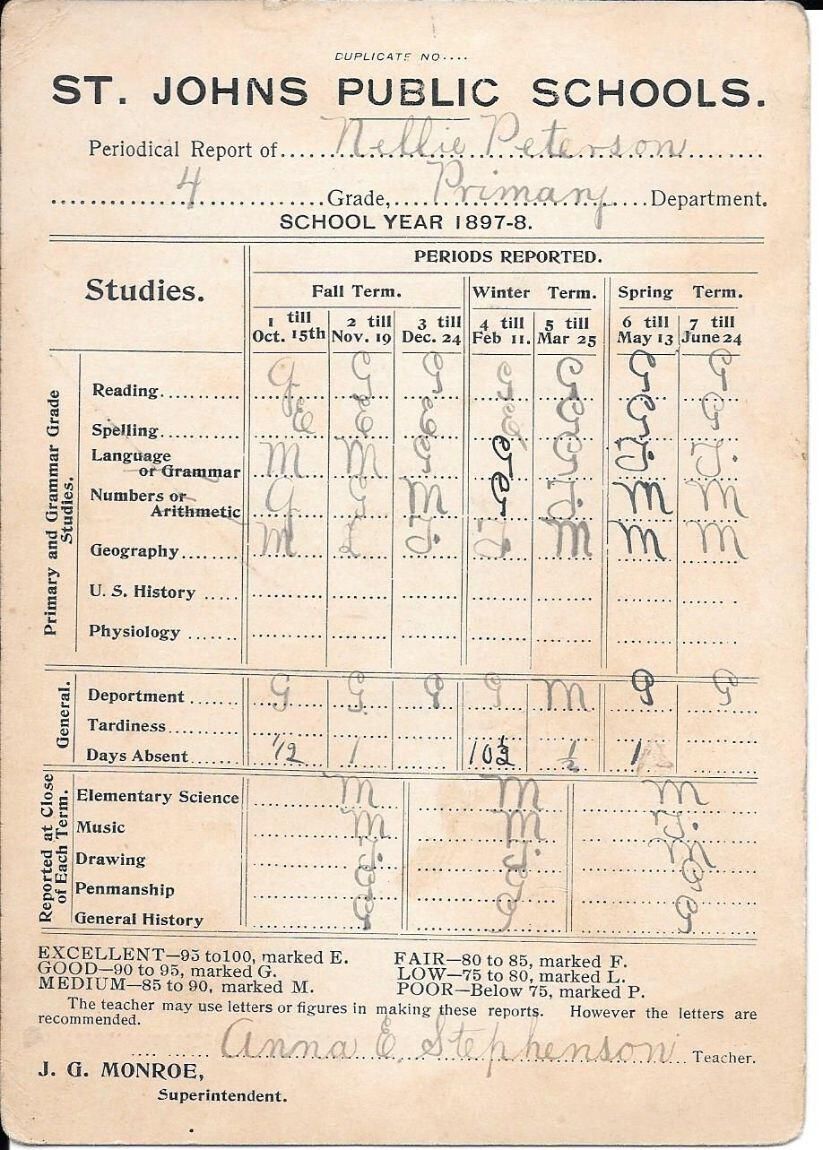 DUPLICATE NO....
ST. JOHNS PUBLIC SCHOOLS.
Periodical Report of Nellie Peterson
4 Grade, Primary Department.
SCHOOL YEAR 1897-8.
Studies. PERIODS REPORTED.
Fall Term. Winter Term. Spring Term.
1 till 2 till 3 till 4 till 5 till 6 till 7 till
Oct. 15th Nov. 19 Dec. 24 Feb 11. Mar 25 May 13 June 24
Primary and Grammar Grade Studies.
Reading G G G G G G G
Spelling
Language
or Grammar M M
Numbers or
Arithmetic G G M M M
Geography M M M M
U. S. History
Physiology
General.
Department G G G G M G G
Tardiness
Days Absent 1/2 1 10½ ½ 1
Reported at Close of Each Term.
Elementary Science M M M
Music M M
Drawing
Penmanship
General History
EXCELLENT—95 to100, marked E. FAIR—80 to 85, marked F.
GOOD—90 to 95, marked G. LOW—75 to 80, marked L.
MEDIUM—85 to 90, marked M. POOR—Below 75, marked P.
The teacher may use letters or figures in making these reports. However the letters are
recommended.
Anna E. Stephenson Teacher.
J. G. MONROE,
Superintendent.